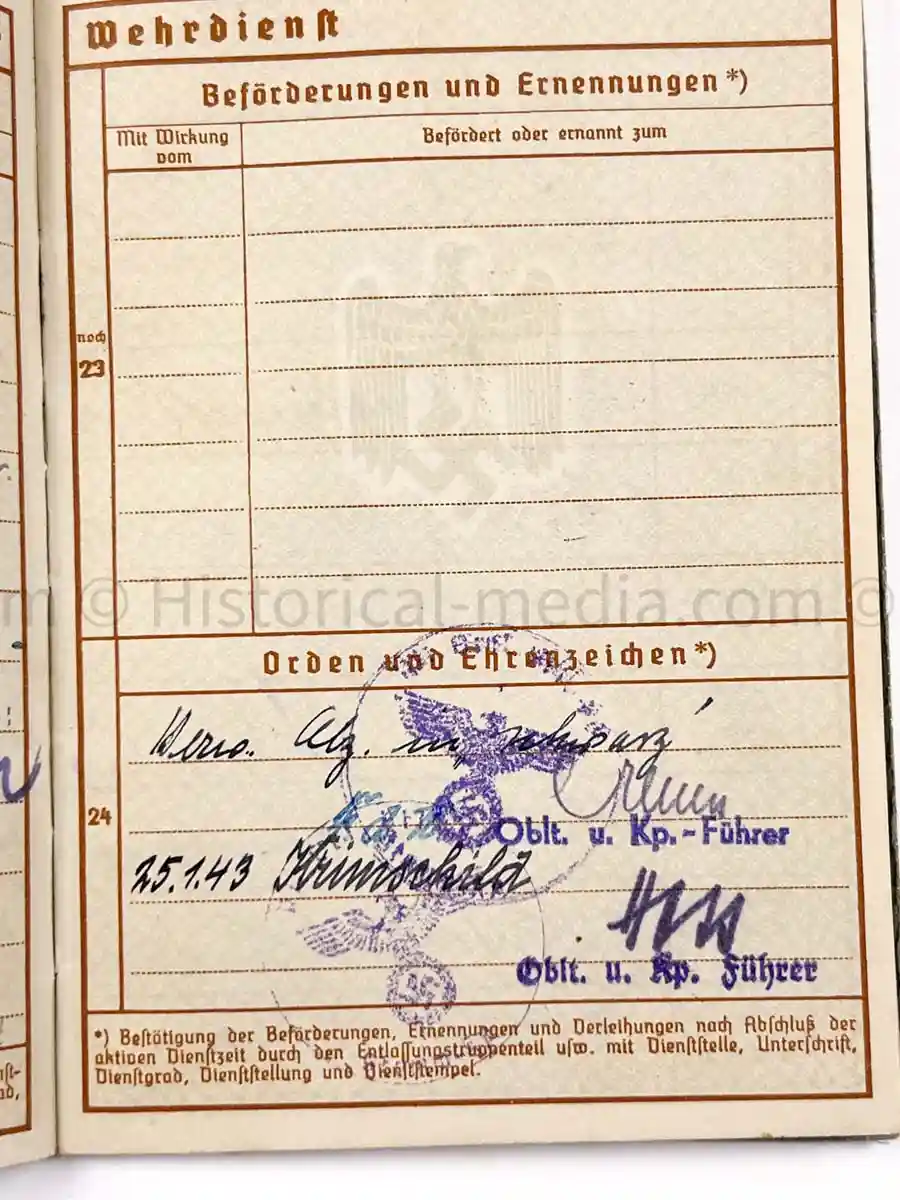 Wehrdienst
Beförderungen und Ernennungen *)
Mit Wirkung vom
Befördert oder ernannt zum
noch
23
© Historical-media.com ©
Orden und Ehrenzeichen *)
24
Verw. Abz. in schwarz
Oblt. u. Kp.-Führer
25.1.43 Krimschild
Oblt. u. Kp. Führer
*) Bestätigung der Beförderungen, Ernennungen und Verleihungen nach Abschluß der
aktiven Dienstzeit durch den Entlassungstruppenteil usw. mit Dienststelle, Unterschrift,
Dienstgrad, Dienststellung und Dienststempel.